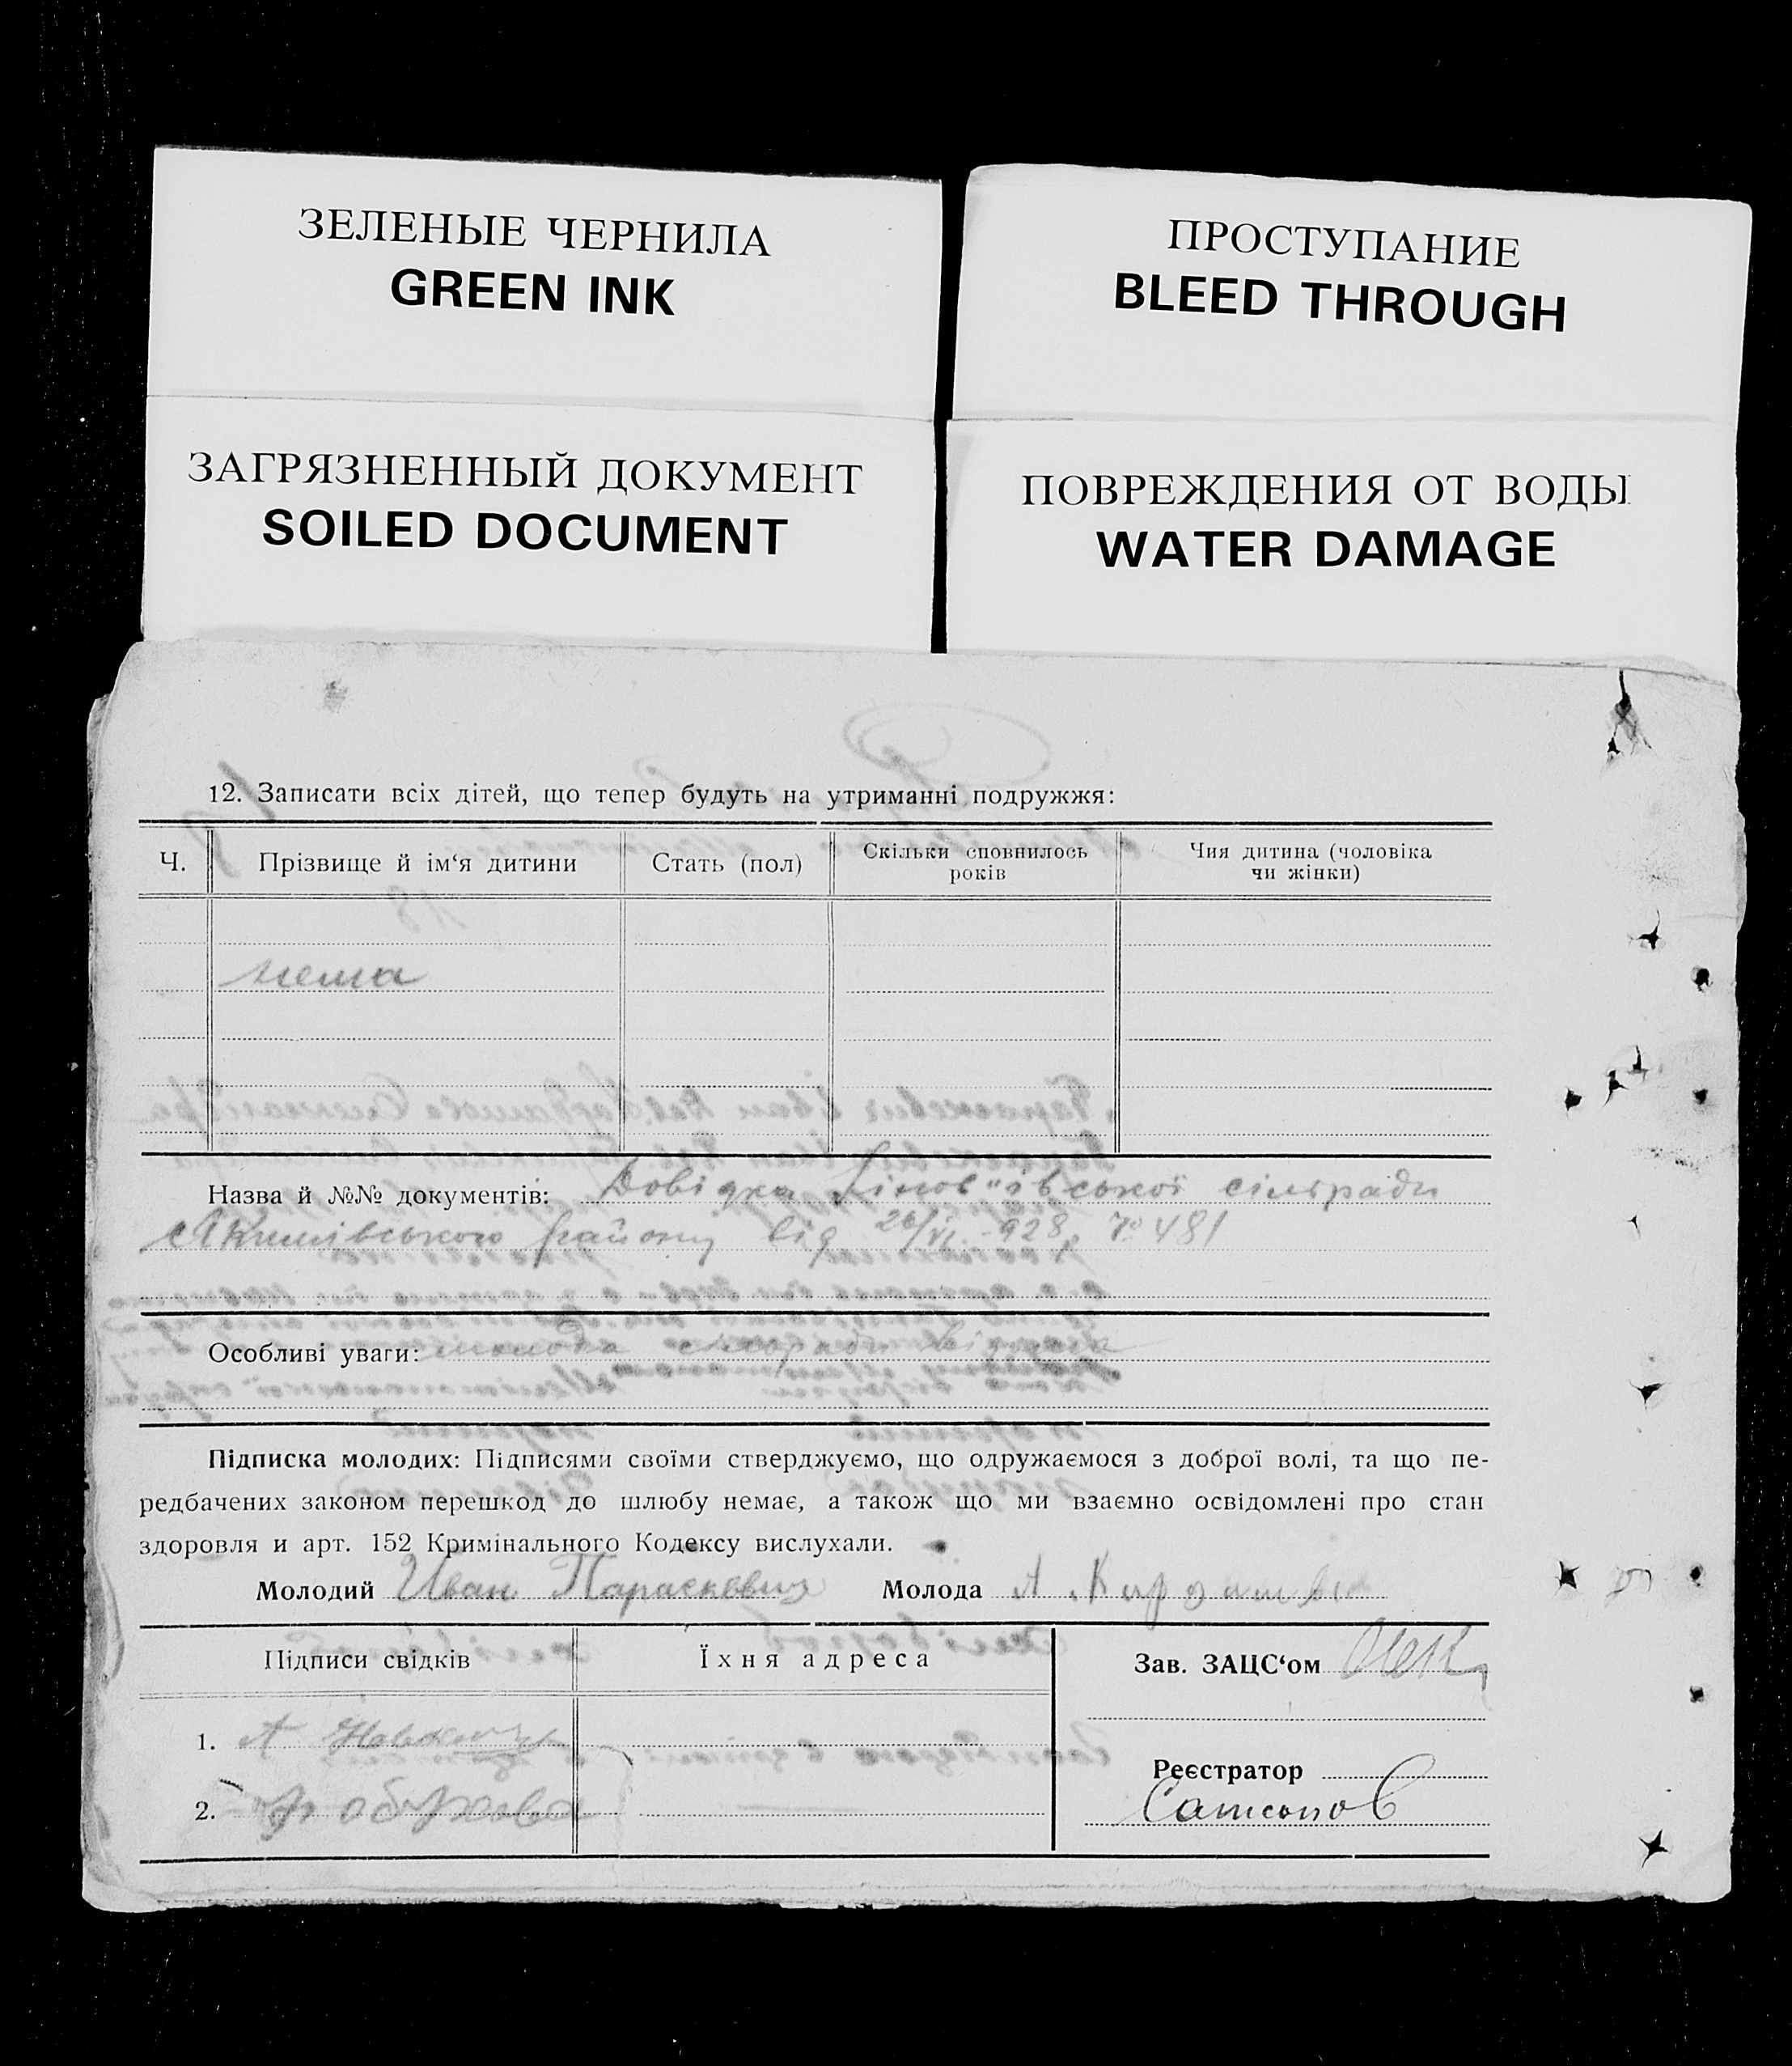 ЗЕЛЕНЫЕ ЧЕРНИЛА
GREEN INK
ПРОСТУПАНИЕ
BLEED THROUGH
ЗАГРЯЗНЕННЫЙ ДОКУМЕНТ
SOILED DOCUMENT
ПОВРЕЖДЕНИЯ ОТ ВОДЫ
WATER DAMAGE
12. Записати всіх дітей, що тепер будуть на утриманні подружжя:
Ч.
Прізвище й ім‘я дитини
Стать (пол)
Скільки сповнилось
років
Чия дитина (чоловіка
чи жінки)
нема
Назва й №№ документів: Довідка сільради
Якимівського району від 26/VI-928 № 481
Особливі уваги:
Підписка молодих: Підписями своїми стверджуємо, що одружаємося з доброї волі, та що пе-
редбачених законом перешкод до шлюбу немає, а також що ми взаємно освідомлені про стан
здоровля и арт. 152 Кримінального Кодексу вислухали.
Молодий Иван Параскевич Молода А
Підписи свідків
Їхня адреса
Зав. ЗАЦС‘ом
1. А
Реєстратор
2.
Самсонов